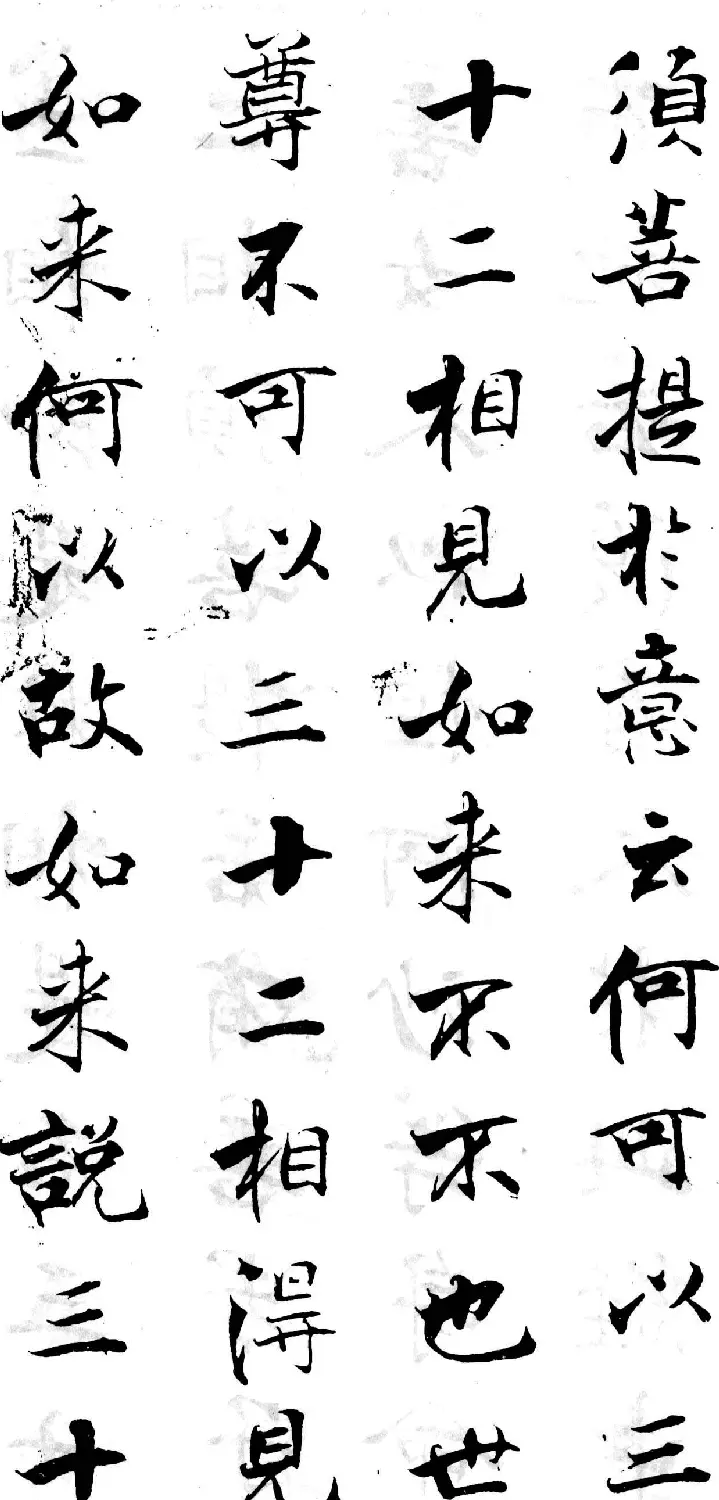 須菩提於意云何可以三
十二相見如来不不也世
尊不可以三十二相得見
如来何以故如来說三十